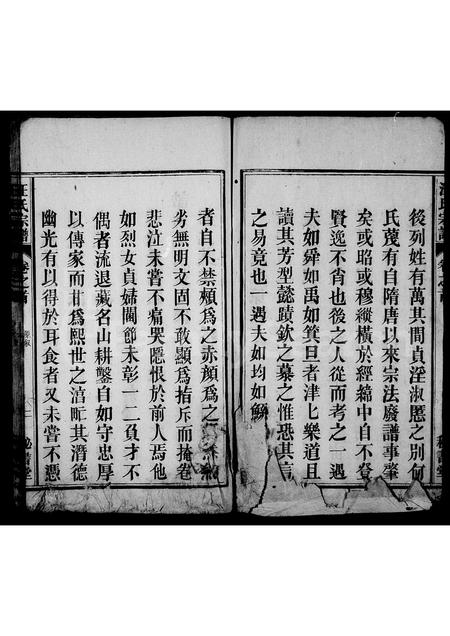 後列姓有萬其間貞淫淑慝之別何
氏蔑有自隋唐以來宗法廢譜事肇
矣或昭或穆縱橫於經緯中自不發
賢逸不肖也後之人從而考之一遇
夫如舜如禹如箕旦者津津樂道且
讀其芳型懿蹟欽之慕之惟恐其言
之易竟也一遇夫如均如鯀
者自不禁頰為之赤顏為之
劣無明文固不敢顯為指斥而掩卷
悲泣未嘗不痛哭隱恨於前人焉他
如烈女貞婦閫節未彰一二負才不
偶者流退藏名山耕鑿自如守忠厚
以傳家而非為熙世之渰眂其潛德
幽光有以得於耳食者又未嘗不憑
汪氏宗譜
卷之首